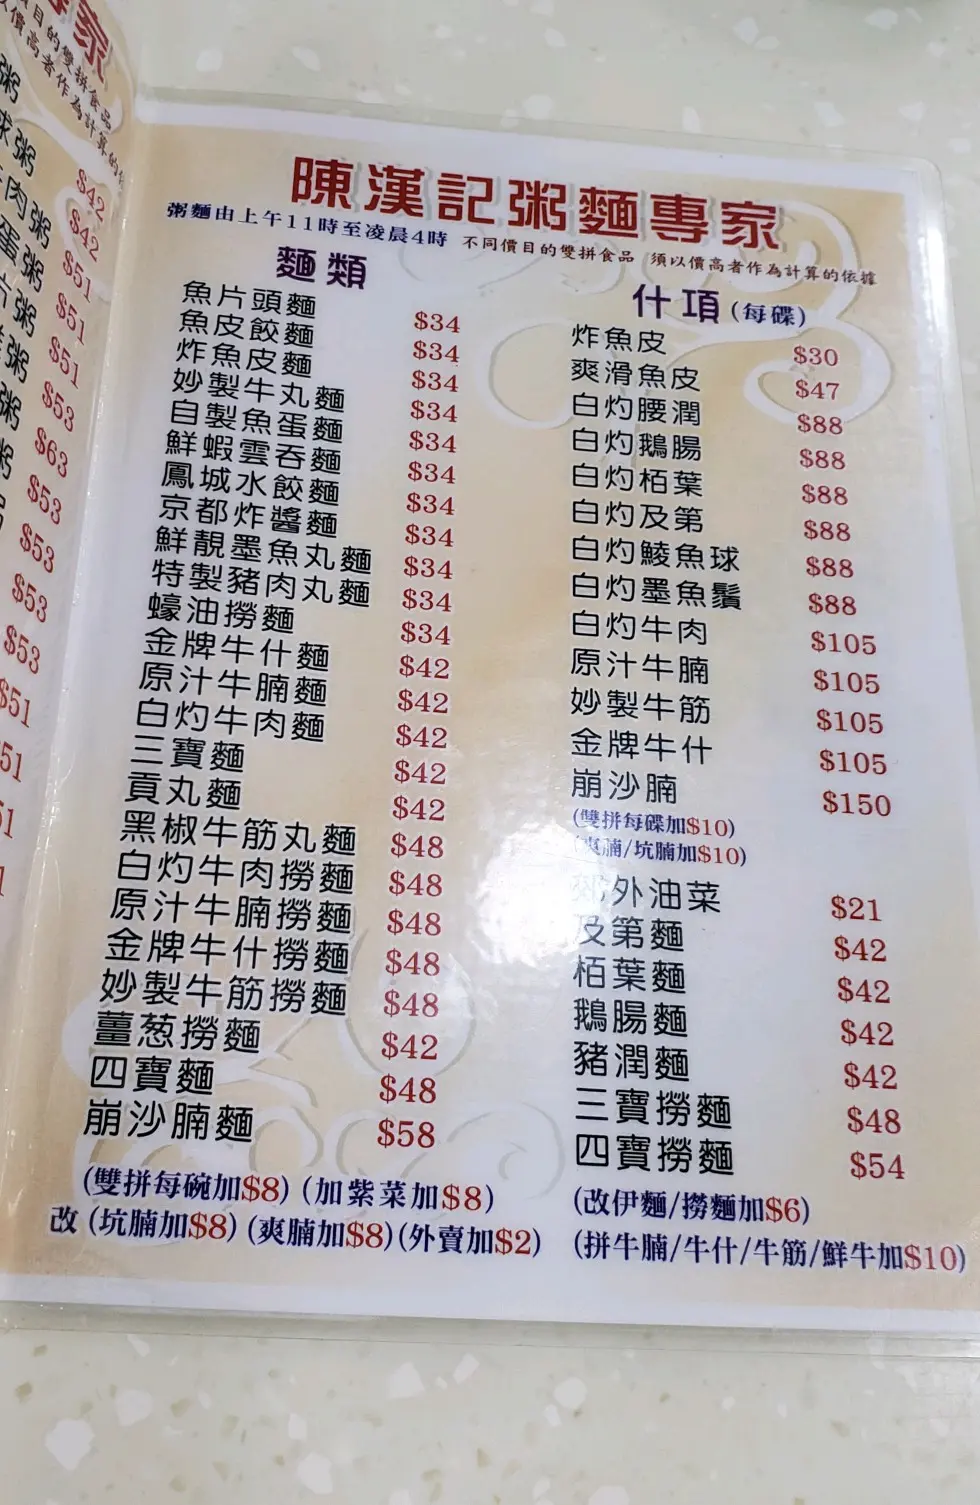 家
目的雙拼食品
以價高者作為計算的
粥
球粥
肉粥
蛋粥
片粥
粥
粥
粥
$42
$42
$51
$51
$51
$53
$63
$53
$53
$53
$53
$51
陳漢記粥麵專家
粥麵由上午11時至凌晨4時 不同價目的雙拼食品 須以價高者作為計算的依據
麵類
魚片頭麵 $34
魚皮餃麵 $34
炸魚皮麵 $34
妙製牛丸麵 $34
自製魚蛋麵 $34
鮮蝦雲吞麵 $34
鳳城水餃麵 $34
京都炸醬麵 $34
鮮靚墨魚丸麵 $34
特製豬肉丸麵 $34
蠔油撈麵 $34
金牌牛什麵 $42
原汁牛腩麵 $42
白灼牛肉麵 $42
三寶麵 $42
貢丸麵 $42
黑椒牛筋丸麵 $48
白灼牛肉撈麵 $48
原汁牛腩撈麵 $48
金牌牛什撈麵 $48
妙製牛筋撈麵 $48
薑葱撈麵 $42
四寶麵 $48
崩沙腩麵 $58
(雙拼每碗加$8) (加紫菜加$8)
改 (坑腩加$8) (爽腩加$8) (外賣加$2)
什項 (每碟)
炸魚皮 $30
爽滑魚皮 $47
白灼腰潤 $88
白灼鵝腸 $88
白灼栢葉 $88
白灼及第 $88
白灼鯪魚球 $88
白灼墨魚鬚 $88
白灼牛肉 $105
原汁牛腩 $105
妙製牛筋 $105
金牌牛什 $105
崩沙腩 $150
(雙拼每碟加$10)
(爽腩/坑腩加$10)
郊外油菜 $21
及第麵 $42
栢葉麵 $42
鵝腸麵 $42
豬潤麵 $42
三寶撈麵 $48
四寶撈麵 $54
(改伊麵/撈麵加$6)
(拼牛腩/牛什/牛筋/鮮牛加$10)